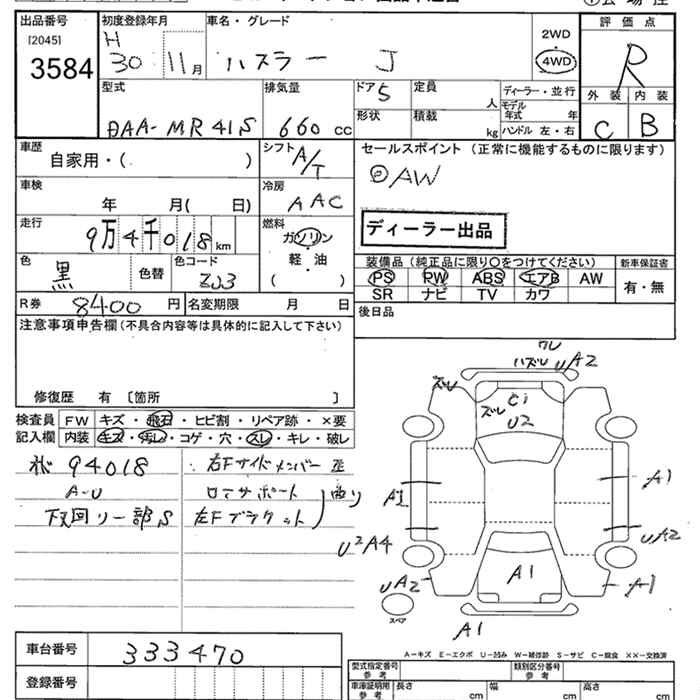 出品番号 [2045] 3584
初度登録年月 H 30 11月
車名・グレード ハスラー J
2WD
4WD
評価点 R
外装 内装
C B
型式 DAA-MR41S
排気量 660 cc
ドア 5
形状
定員 人
積載 kg
ディーラー・並行
モデル年式 年
ハンドル 左・右
車歴 自家用・( )
シフト A/T
セールスポイント (正常に機能するものに限ります)
◎AW
車検 年 月( 日)
冷房 AAC
ディーラー出品
走行 9万4千018km
燃料 ガソリン・軽油 ( )
色 黒 色替
色コード ZJ3
装備品 (純正品に限り○をつけてください)
新車保証書
PS PW ABS エアB AW
SR ナビ TV カワ
有・無
R券 8400円
名変期限 月 日
後日品
注意事項申告欄 (不具合内容等は具体的に記入して下さい)
修復歴 有 [箇所 ]
検査員記入欄
FW キズ・飛石・ヒビ割・リペア跡・×要
内装 キズ・汚レ・コゲ・穴・スレ・キレ・破レ
94018
A-U
下回リ一部S
右Fサイドメンバー
ロアサポート
左Fブラケット
曲リ
クレ
ハズレ
UA2
ズレ
ズレ
U2
A1
A1
UA2
U2A4
UA2
A1
A1
A1
スペア
A-キズ E-エクボ U-凹み W-補修跡 S-サビ C-腐食 ××-交換済
車台番号 333470
登録番号
型式指定番号 参考
類別区分番号 参考
車庫証明用 参考
長さ cm
幅 cm
高さ cm